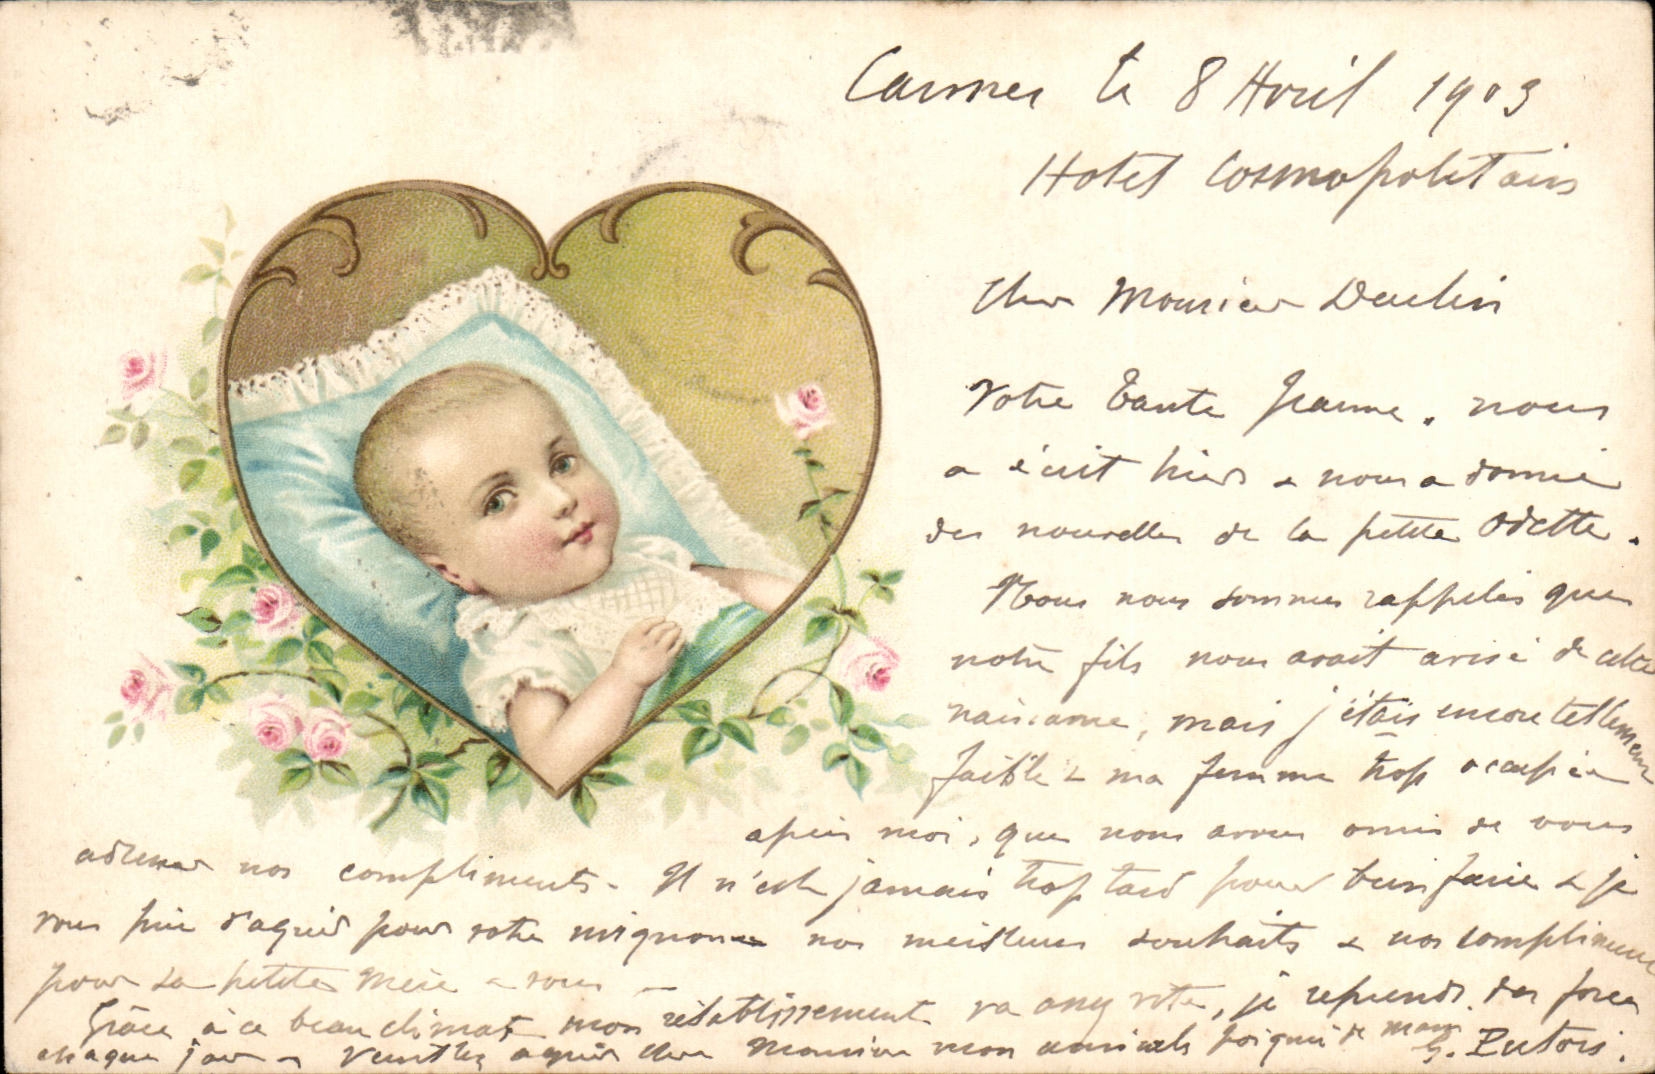 Cannes le 8 Avril 1903
Hotel Cosmopolitain
Cher Monsieur
Votre Tante Jeanne, nous
a écrit hier & nous a donné
des nouvelles de la petite Odette.
Nous nous sommes rappelés que
notre fils nous avait avisé de cette
naissance, mais j'étais encore tellement
faible & ma femme trop occupée
après moi, que nous avons omis de vous
adresser nos compliments. Il n'est jamais trop tard pour bien faire & je
vous prie d'agréer pour votre mignonne nos meilleurs souhaits & nos compliments
pour sa petite Mère & vous -
Grâce à ce beau climat mon rétablissement va assez vite, je reprends des forces
chaque jour - Veuillez agréer cher Monsieur mon amicale poignée de main
G.